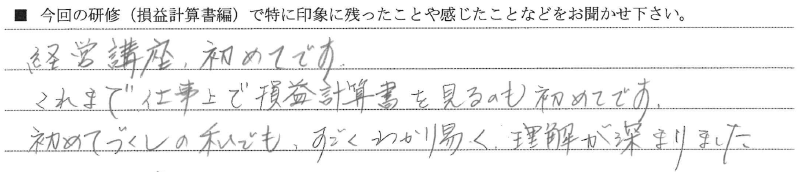 ■ 今回の研修（損益計算書編）で特に印象に残ったことや感じたことなどをお聞かせ下さい。
経営講座、初めてです。
これまで仕事上で損益計算書を見るのも初めてです。
初めてづくしの私でも、すごくわかり易く、理解が深まりました